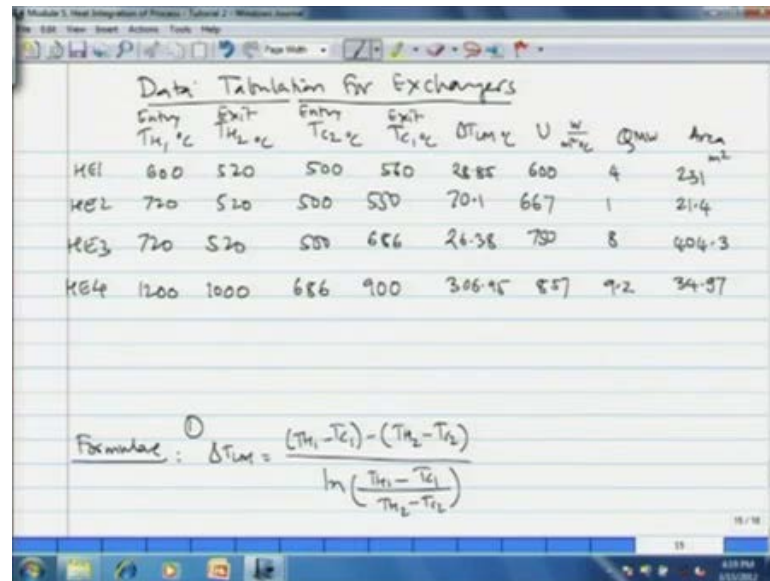 Module 5. Heat Integration of Process - Tutorial 2 - Windows Journal
File Edit View Insert Actions Tools Help
Page Width
Data Tabulation for Exchangers
Entry TH1 °C Exit TH2 °C Entry TC2 °C Exit TC1 °C ΔTLM °C U W/m²°C QMW Area m²
HE1 600 520 500 560 28.85 600 4 231
HE2 720 520 500 550 70.1 667 1 21.4
HE3 720 520 500 686 26.38 750 8 404.3
HE4 1200 1000 686 900 306.95 857 9.2 34.97
Formulae : ① ΔTLM = (TH1 - TC1) - (TH2 - TC2) / ln (TH1 - TC1 / TH2 - TC2)
15 / 16
15
4:59 PM